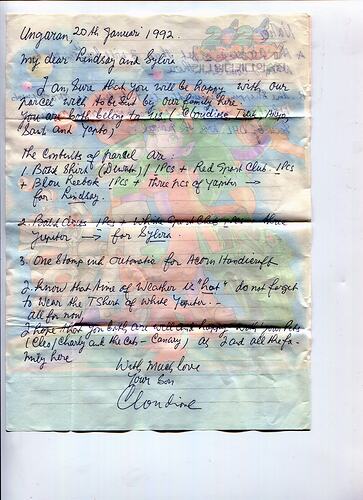 Ungaran, 20th Januari 1992.
My dear Lindsay and Sylvia
I am sure that you will be happy with our
parcel will to be sent by our family here
You are both belong to us! (Claudine Titik
"Santi and Yanto)"
The Contents of parcel are:
1. Batik Shirt 1Pcs + Red Sport Club. 1Pcs
+ Blou Reebok 1Pcs + Three pcs of Yupiter →
for Lindsay.
2. Batik 1Pcs + White Sport Club 1Pcs three
Yupiter → for Sylvia.
3. One Stamp ink Automatic for Acorn Handicraft
I know that time of Weather is "hot" do not forget
to Wear the TShirt of White Yupiter. -
all for now,
I hope that You both are well and happy with Your Pets
(Cleo/Charly and the Cats - Canary) as I and all the fa-
mily here
With Much love
Your Son
Claudine